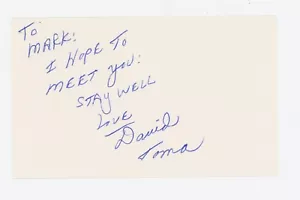 To
MARK:
I HOPE TO
MEET YOU:
STAY WELL
LOVE
David
Toma